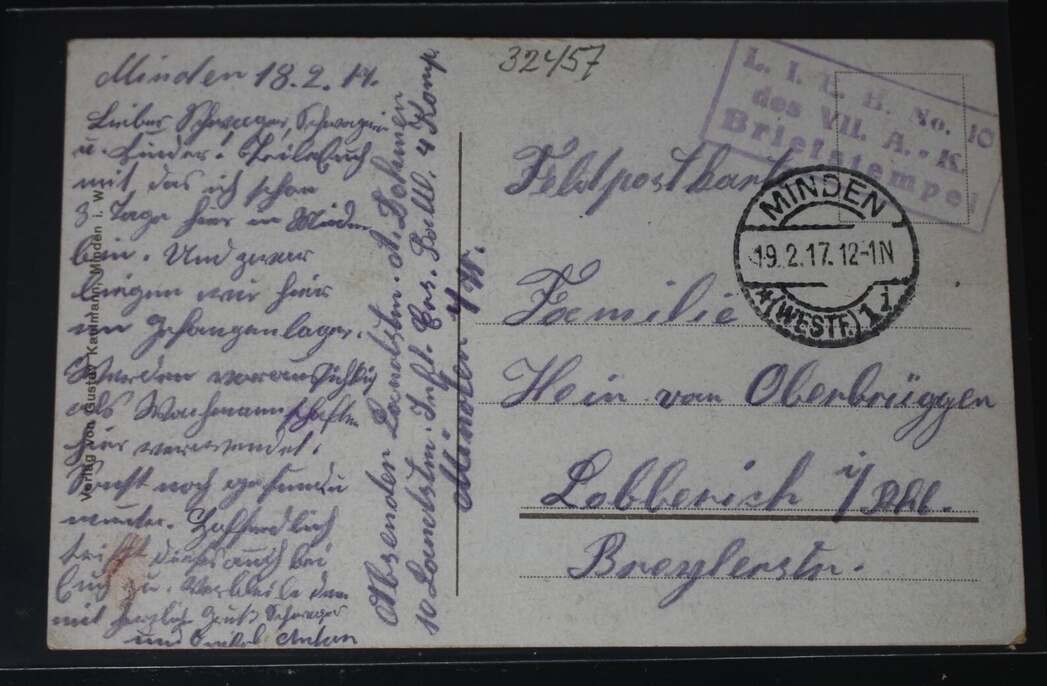 Minden 18.2.17.
Lieber Schwager, Schwägerin
u. Kinder. Teile Euch
mit, das ich schon
3 Tage hier in Minden
bin. Und zwar
liegen wir hier
im Gefangenlager.
Werden voraussichtlich
als Wachmannschaften
hier verwendet.
Sonst noch gesund u
munter. Hoffendlich
trifft dieses auch bei
Euch zu. Verbleibe denn
mit herzlich Gruß Schwager
und Onkel Anton
Verlag von Gustav Kaufmann, Minden i. W.
Absender Landstm. A.
10 Landstm. Inft. Ers. Batl. 4 Komp.
Minden i/W.
32457
L. I. E. B. No. 10
des VII. A.-K.
Briefstempel
MINDEN
19.2.17. 12-1N
*(WESTF.)1 i
Feldpostkarte
Familie
Hein van Oberbrüggen
Lobberich i/Rhl.
Breylerstr.